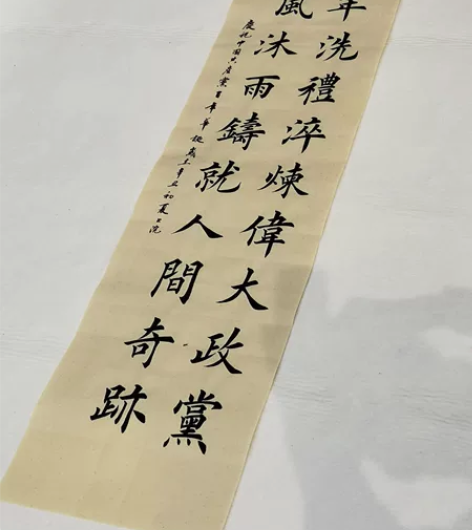 年洗禮淬煉偉大政黨
風沐雨鑄就人間奇跡
慶祝中國共産黨百年華誕歲辛丑初夏